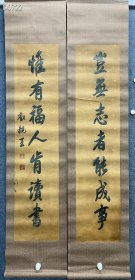 豈無志者能成事
惟有福人肯讀書